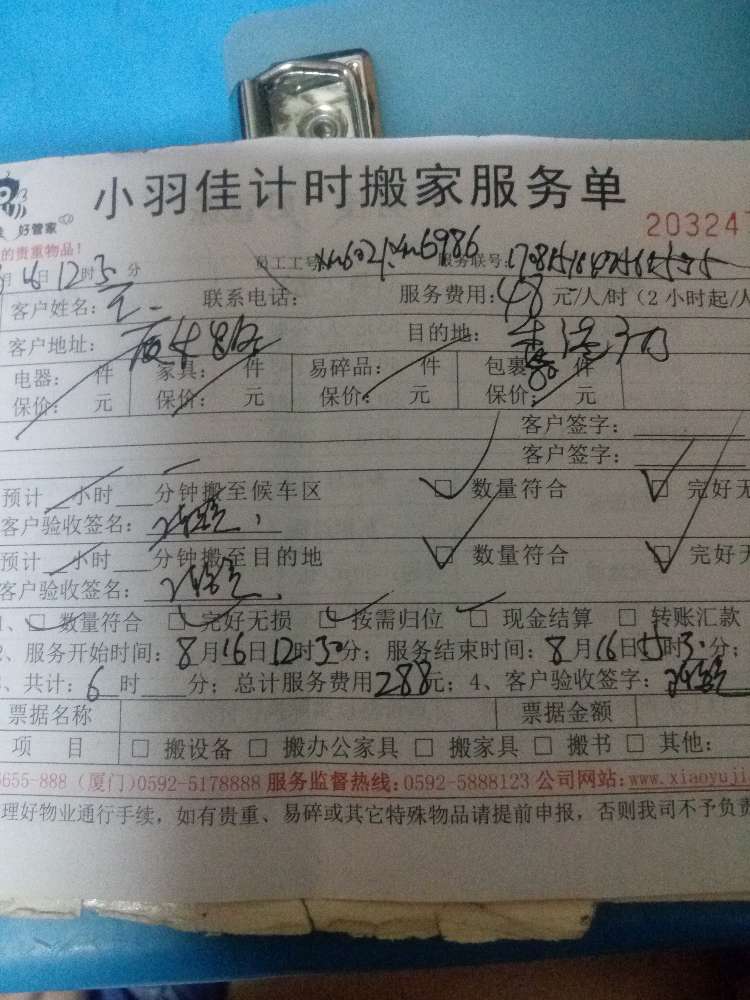 小羽佳计时搬家服务单
好管家
203247
的贵重物品！
月16日12时30分 员工工号 服务联号:
客户姓名:王 联系电话: 服务费用:48元/人/时（2小时起/人
客户地址: 目的地:
电器: 件 家具: 件 易碎品: 件 包裹: 件
保价: 元 保价: 元 保价: 元 保价: 元
客户签字:
客户签字:
预计 小时 分钟搬至候车区 □ 数量符合 □ 完好无
客户验收签名:
预计 小时 分钟搬至目的地 □ 数量符合 □ 完好无
客户验收签名:
1、□ 数量符合 □ 完好无损 □ 按需归位 □ 现金结算 □ 转账汇款
2、服务开始时间: 8月16日12时30分; 服务结束时间: 8月16日 时30分;
3、共计: 6时 分; 总计服务费用288元; 4、客户验收签字:
票据名称 票据金额
项 目 □ 搬设备 □ 搬办公家具 □ 搬家具 □ 搬书 □ 其他:
5655-888 (厦门)0592-5178888 服务监督热线:0592-5888123 公司网站:www.xiaoyuji
理好物业通行手续，如有贵重、易碎或其它特殊物品请提前申报，否则我司不予负责